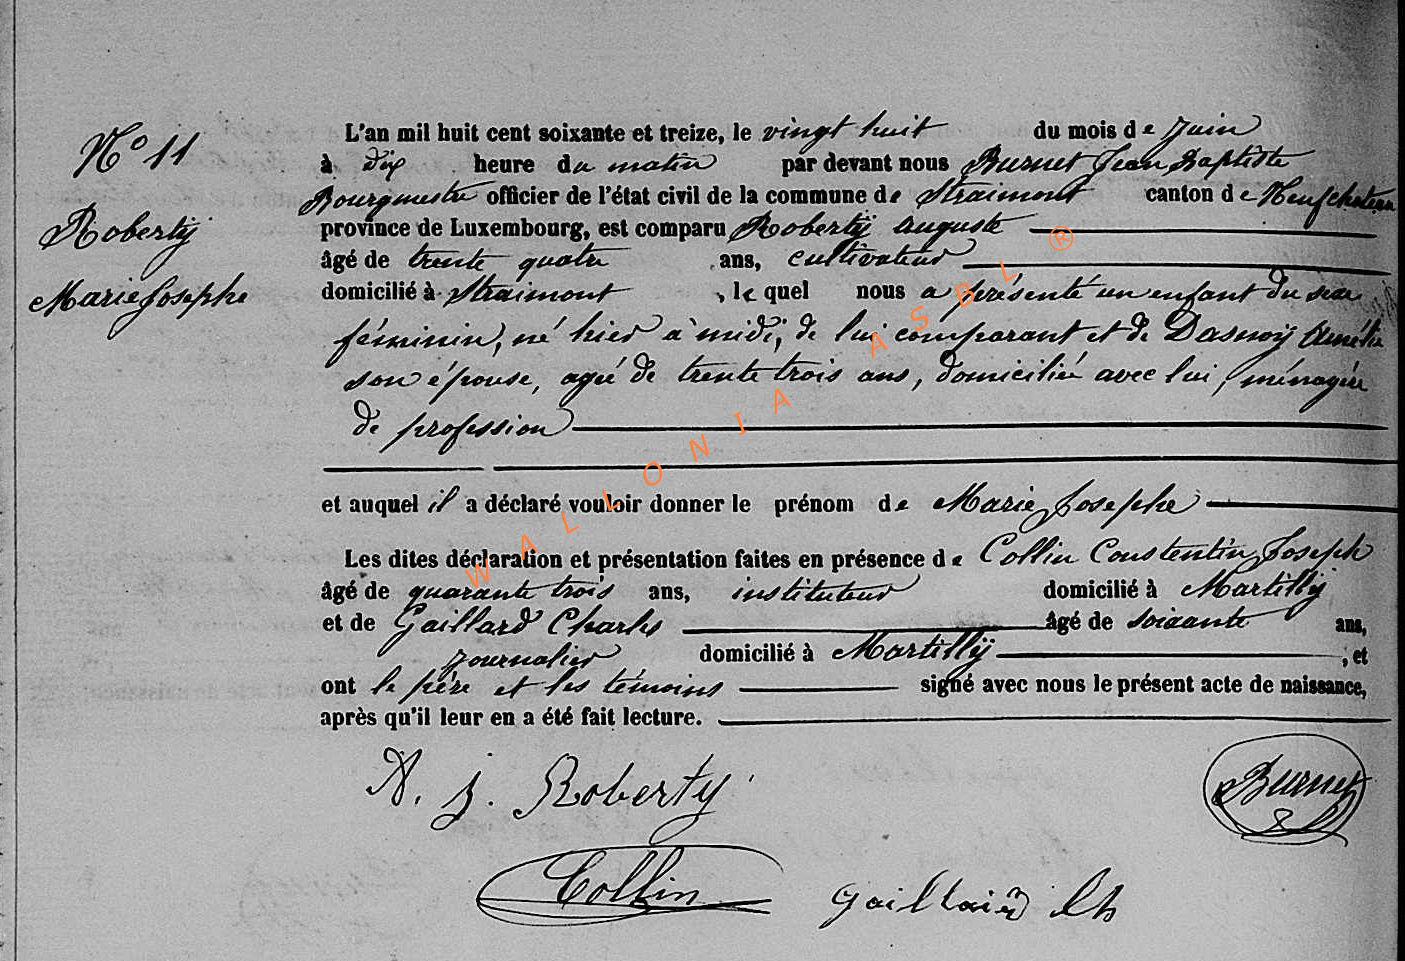 N° 11
Roberty
Marie Josephe
L'an mil huit cent soixante et treize, le vingt huit du mois de Juin
à dix heure du matin par devant nous Burnet Jean Baptiste
Bourgmestre officier de l'état civil de la commune de Straimont canton de Neufchateau
province de Luxembourg, est comparu Roberty Auguste
âgé de trente quatre ans, cultivateur
domicilié à Straimont, lequel nous a présenté un enfant du sexe
féminin, né hier à midi, de lui comparant et de Dasnoÿ Amélie
son épouse, agée de trente trois ans, domiciliée avec lui, ménagère
de profession
et auquel il a déclaré vouloir donner le prénom de Marie Josephe
Les dites déclaration et présentation faites en présence de Collin Constentin Joseph
âgé de quarante trois ans, instituteur domicilié à Martilly
et de Gaillard Charles âgé de soixante ans,
journalier domicilié à Martilly, et
ont le père et les témoins signé avec nous le présent acte de naissance,
après qu'il leur en a été fait lecture.
A. J. Roberty
Burnet
Collin
Gaillard Ch
WALLONIA ASBL ®